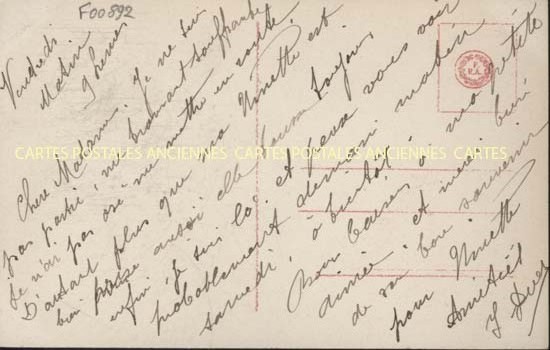 F00892
Vendredi
Matin
9 heures
Chère Madame. Je ne suis
pas partie, me trouvant souffrante
Je n'ai pas osé me mettre en route
D'autant plus que ma Ninette est
bien aussi, elle toujours,
enfin je suis là, et je veux vous voir
probablement demain matin
samedi, à bientôt, ma petite
Bons baisers à
aimée, et merci bien
de son bon souvenir
pour Ninette
Amitiés
Y
CARTES POSTALES ANCIENNES CARTES POSTALES ANCIENNES CARTES